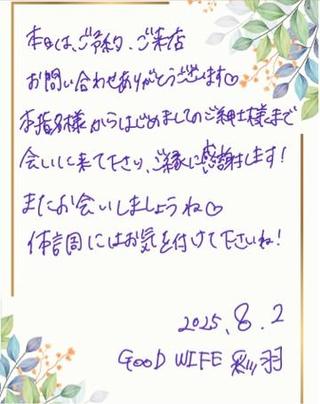 本日は、ご予約、ご来店
お問い合わせありがとうございます♡
本指名様からはじめましてのご紳士様まで
会いに来て下さり、ご縁に感謝します！
またお会いしましょうね♡
体調にはお気を付けて下さいね！
2025.8.2
GOOD WIFE 彩羽